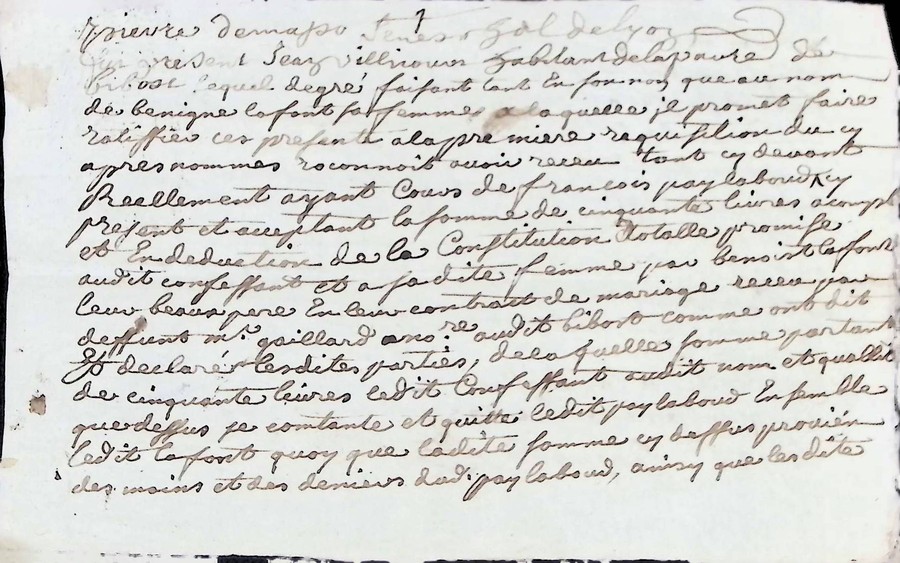 pierre demasso senes. gal de lyon
fut present Jean villieuvr habitant de la parre de
bibost lequel de gré faisant tant En son nom que au nom
de benigne lafont sa femme a laquelle jl promet faire
ratiffié ces presente a la premiere requisition du cy
apres nommes reconnoit avoir receu tant cy devant
Reellement ayant Cours de francois paylaboud cy
present et acceptant la somme de cinquante livres acompt
et En deduction de la Constitution totalle promise
audit confessant et a sa dite femme par benoist lafont
leur beau pere En leur contract de mariage receu par
deffunt mr. gaillard a nore audit bibost comme ont dit
Et declaré lesdites parties, de laquelle somme partant
de cinquante livres ledit Confessant audit nom et quallité
que dessus se comtante et quitte ledit paylaboud Ensemble
ledit lafont quoy que ladite somme cy dessus provien
des mains et des deniers dud. paylaboud, ainsy que lesdite